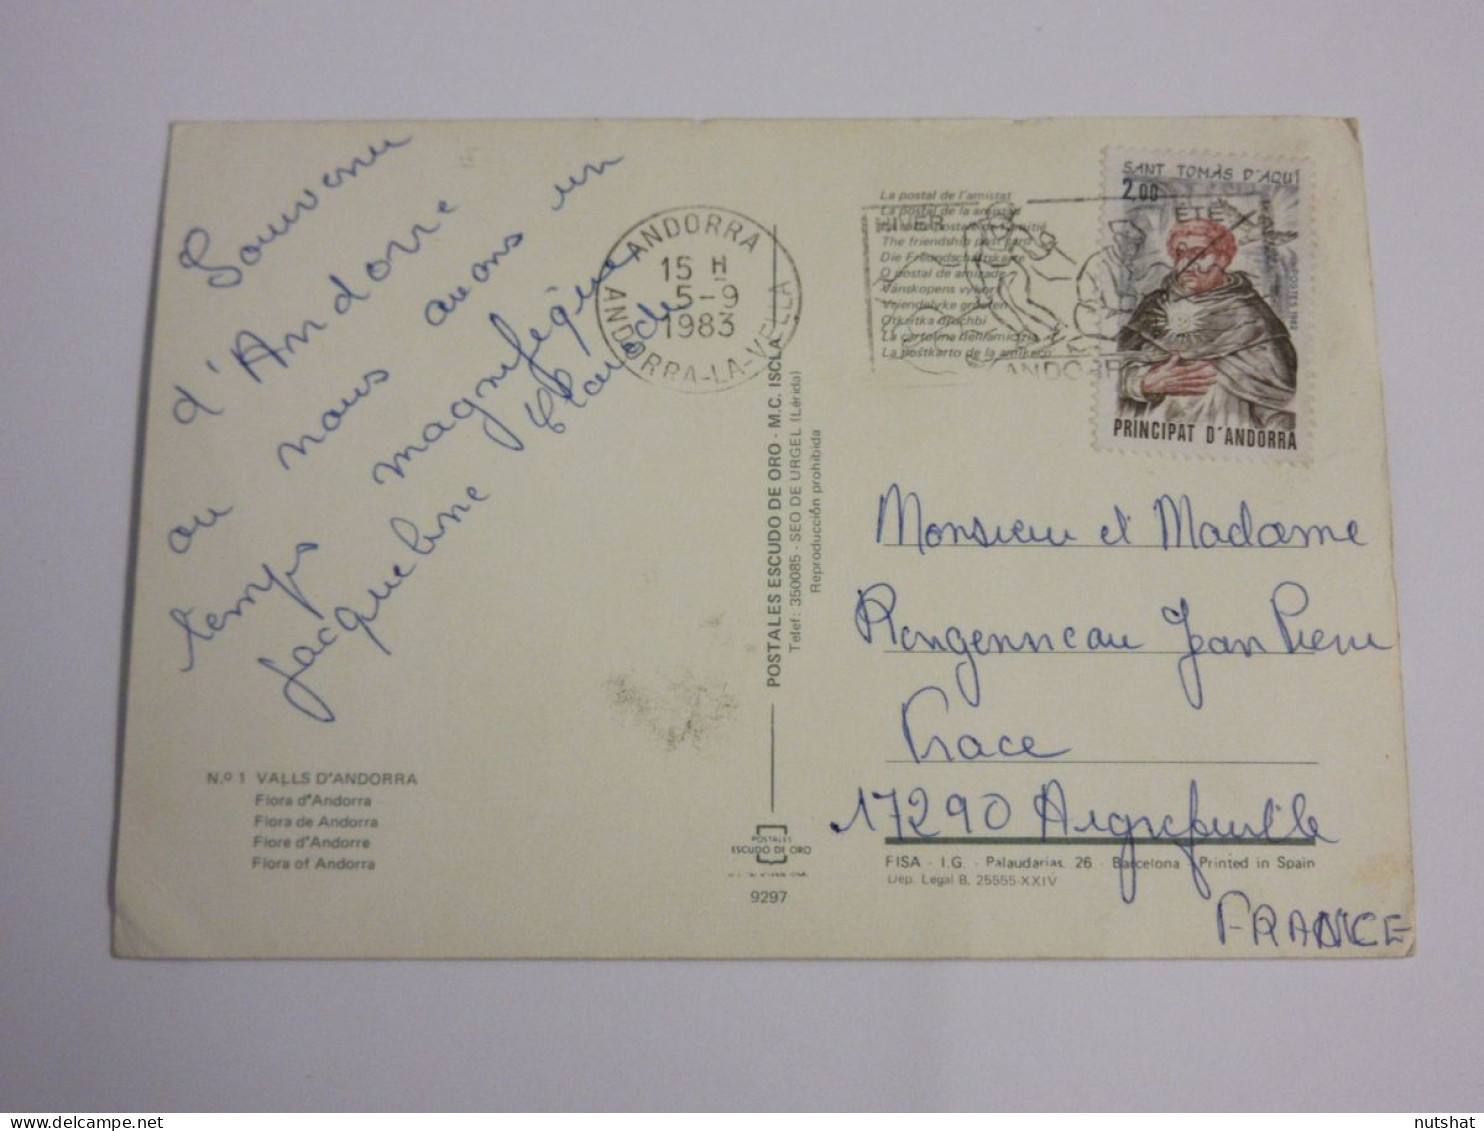 Souvenir
d'Andorre
ou nous avons un
temps magnifique
Jacqueline Claude
N.º 1 VALLS D'ANDORRA
Flora d'Andorra
Flora de Andorra
Flore d'Andorre
Flora of Andorra
ANDORRA
15 H
5-9
1983
ANDORRA-LA-VELLA
POSTALES ESCUDO DE ORO - M.C. ISCLA
Telef: 350085 - SEO DE URGEL (Lérida)
Reproducción prohibida
POSTALES
ESCUDO DE ORO
9297
La postal de l'amistat
La postal de la amistad
The friendship post card
Die Freundschaftskarte
O postal de amizade
Vánskopens vykort
La cartolina dell'amicizia
La postkarto de la amikeco
HIVER
ÉTÉ
ANDORR
SANT TOMÀS D'AQUI
2,00
POSTES 1982
PRINCIPAT D'ANDORRA
Monsieur et Madame
Rongenneau Jean Pierre
Prace
17290 Aigrefeuille
FISA - I.G. - Palaudarias, 26 - Barcelona - Printed in Spain
Dep. Legal B. 25555-XXIV
FRANCE